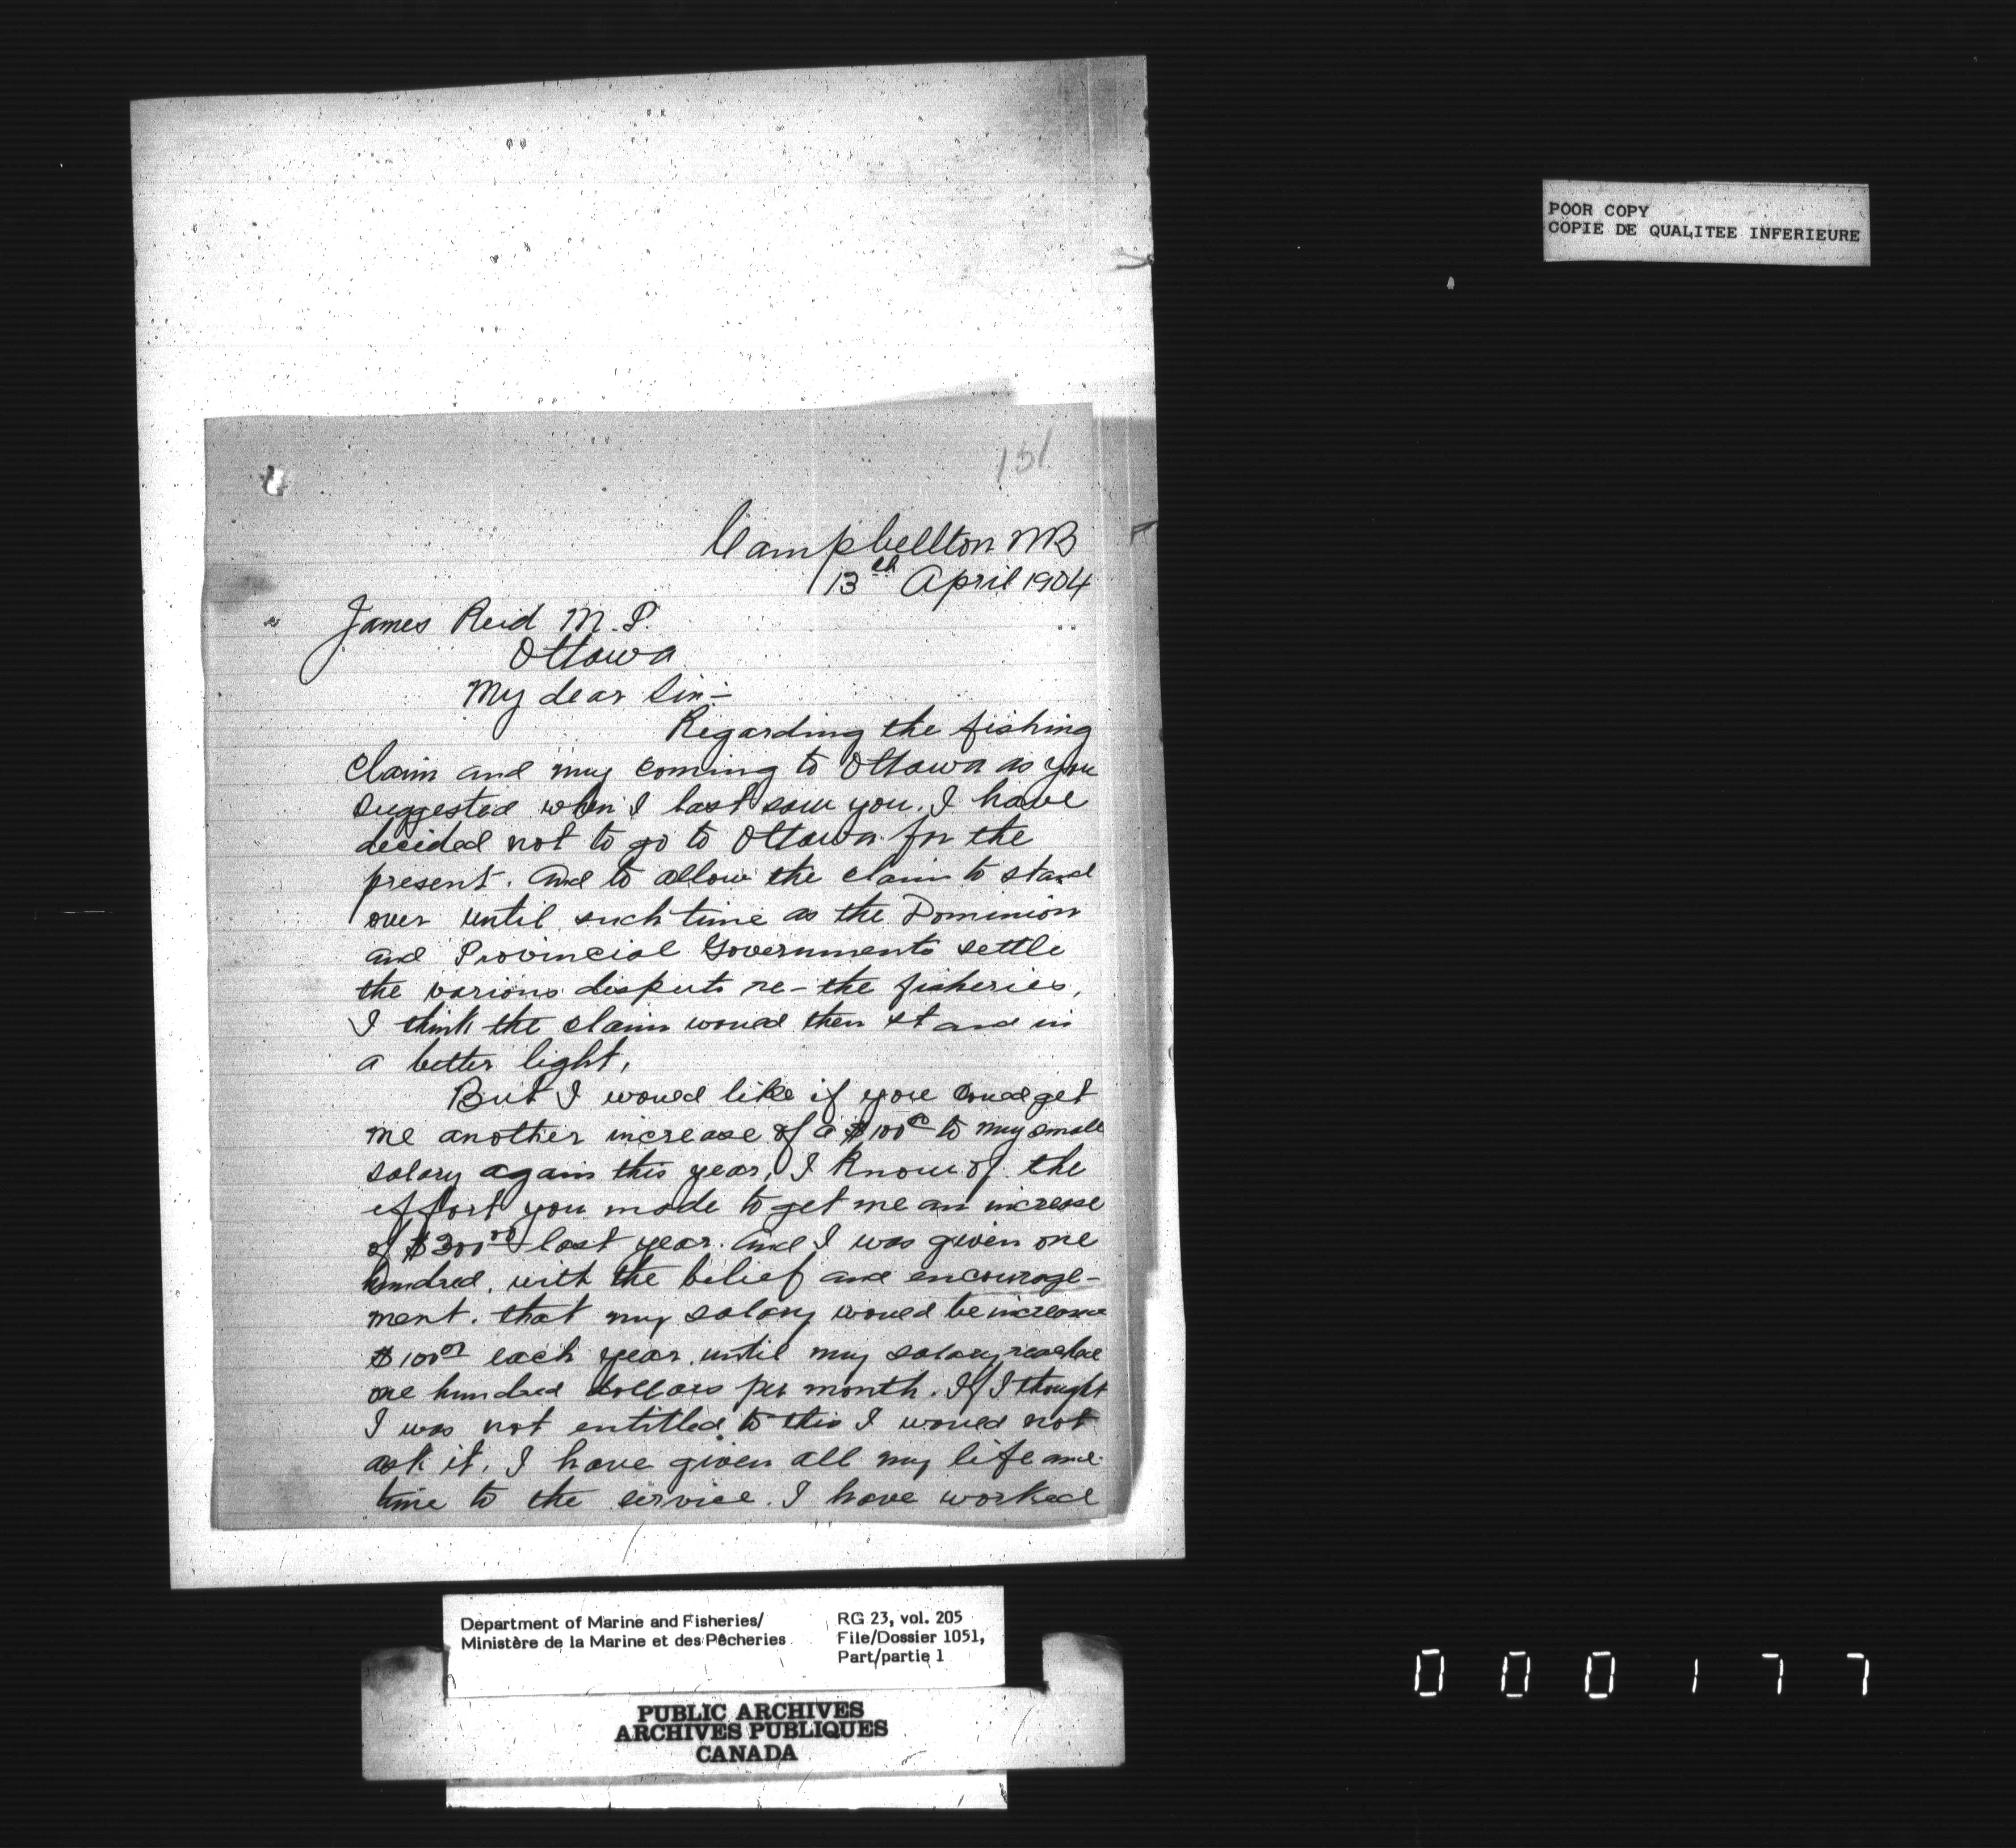 POOR COPY
COPIE DE QUALITEE INFERIEURE
151
Campbellton NB
13th April 1904
James Reid M.P.
Ottawa
My dear Sir:-
Regarding the fishing
claim and my coming to Ottawa as you
suggested when I last saw you. I have
decided not to go to Ottawa for the
present. And to allow the claim to stand
over until such time as the Dominion
and Provincial Governments settle
the various disputs re-the fisheries,
I think the claim would then stand in
a better light,
But I would like if you could get
me another increase of a $100.00 to my small
salary again this year, I know of the
effort you made to get me an increase
of $300.00 last year. And I was given one
hundred, with the belief and encourage-
ment. that my salary would be increased
$100.00 each year, until my salary reached
one hundred dollars per month. If I thought
I was not entitled to this I would not
ask it, I have given all my life and
time to the service. I have worked
Department of Marine and Fisheries/
Ministère de la Marine et des Pêcheries
RG 23, vol. 205
File/Dossier 1051,
Part/partie 1
PUBLIC ARCHIVES
ARCHIVES PUBLIQUES
CANADA
000177